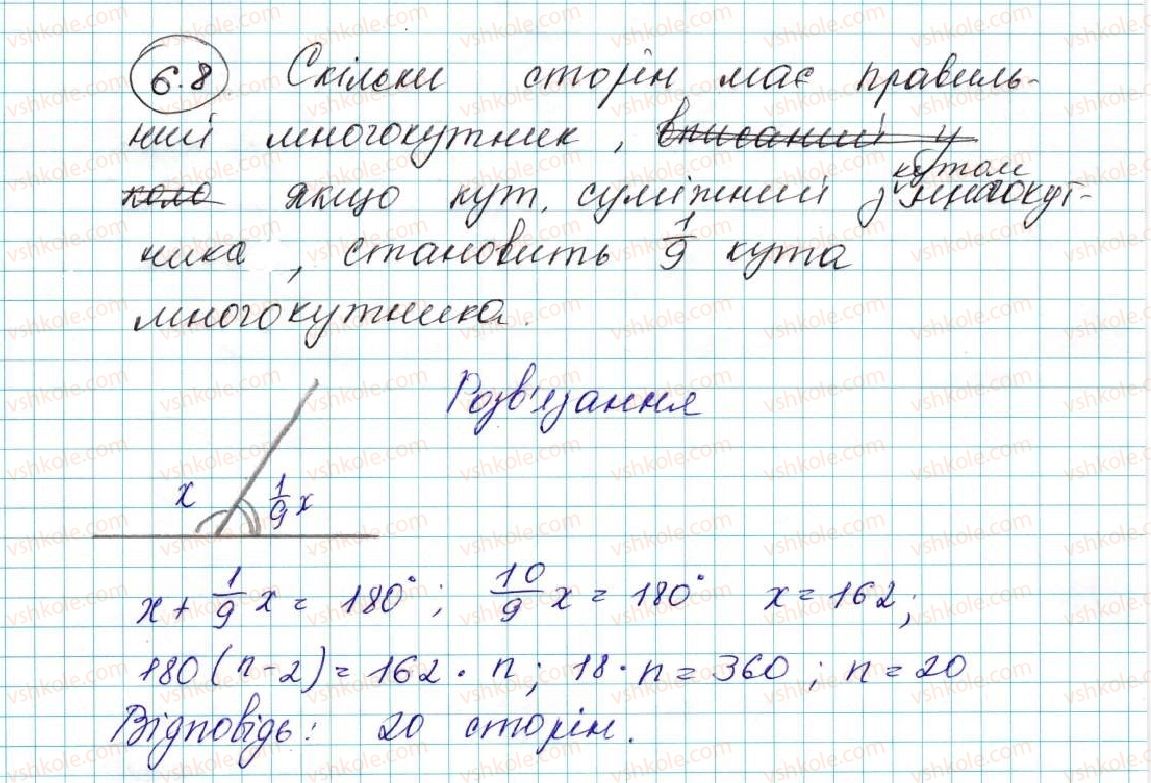 6.8 Скільки сторін має правиль-
ний многокутник, вписаний у
кутом
коло якщо кут, суміжний з многокут-
ника, становить 1/9 кута
многокутника.
Розв'язання
x 1/9 x
x + 1/9 x = 180°; 10/9 x = 180° x = 162;
180(n-2) = 162 · n; 18 · n = 360; n = 20
Відповідь: 20 сторін.